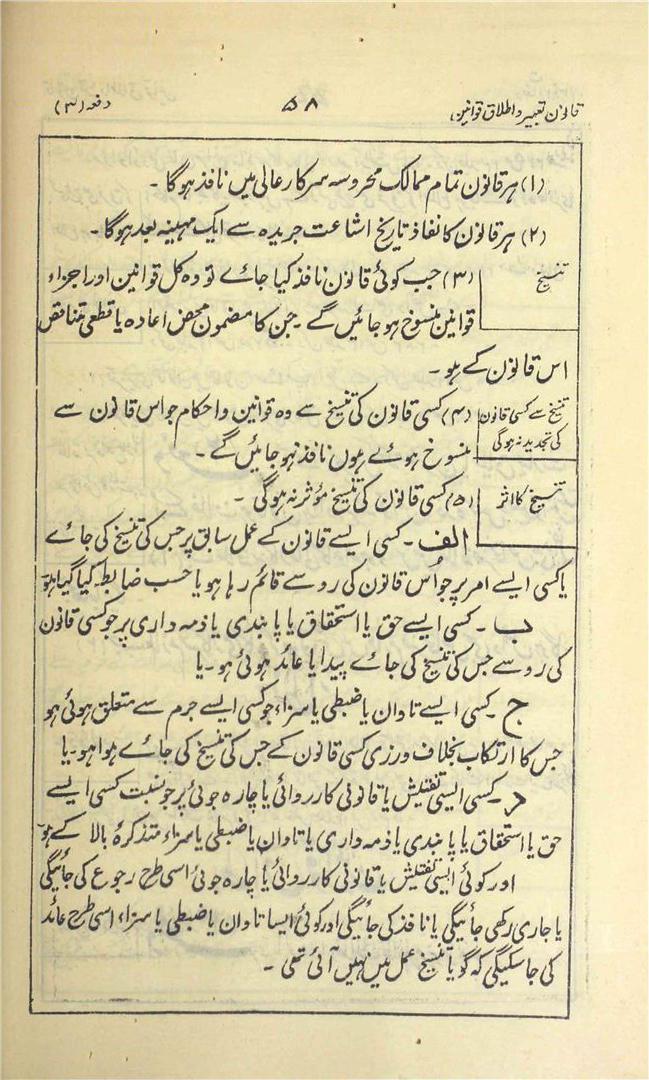 قانون تعبیر و اطلاق قوانین، ۵۸ دفعہ (۳)
(۱) ہر قانون تمام ممالک محروسہ سرکار عالی میں نافذ ہوگا ۔
(۲) ہر قانون کا نفاذ تاریخ اشاعت جریدہ سے ایک مہینہ بعد ہوگا ۔
تنسیخ
(۳) جب کوئی قانون نافذ کیا جائے تو وہ کل قوانین اور اجزاء
قوانین منسوخ ہو جائیں گے جن کا مضمون محض اعادہ یا قطعی متناقض
اس قانون کے ہو ۔
تنسیخ سے کسی قانون
کی تجدید نہ ہوگی
(۴) کسی قانون کی تنسیخ سے وہ قوانین و احکام جو اس قانون سے
منسوخ ہوئے ہوں نافذ نہو جائیں گے ۔
تنسیخ کا اثر
(۵) کسی قانون کی تنسیخ مؤثر نہ ہوگی ۔
الف ۔ کسی ایسے قانون کے عمل سابق پر جس کی تنسیخ کی جائے
یا کسی ایسے امر پر جو اُس قانون کی رو سے قائم رہا ہو یا حسب ضابطہ کیا گیا ہو
ب ۔ کسی ایسے حق یا استحقاق یا پابندی یا ذمہ داری پر جو کسی قانون
کی رو سے جس کی تنسیخ کی جائے پیدا یا عائد ہوئی ہو ۔ یا
ج ۔ کسی ایسے تاوان یا ضبطی یا سزاء جو کسی ایسے جرم سے متعلق ہوئی ہو
جس کا ارتکاب بخلاف ورزی کسی قانون کے جس کی تنسیخ کی جائے ہوا ہو ۔ یا
د ۔ کسی ایسی تفتیش یا قانونی کارروائی یا چارہ جوئی پر جو نسبت کسی ایسے
حق یا استحقاق یا پابندی یا ذمہ داری یا تاوان یا ضبطی یا سزاء متذکرۂ بالا کے ہو
اور کوئی ایسی تفتیش یا قانونی کارروائی یا چارہ جوئی اسی طرح رجوع کی جائیگی
یا جاری رکھی جائیگی یا نافذ کی جائیگی اور کوئی ایسا تاوان یا ضبطی یا سزاء اسی طرح عائد
کی جا سکیگی کہ گویا تنسیخ عمل میں نہیں آئی تھی ۔